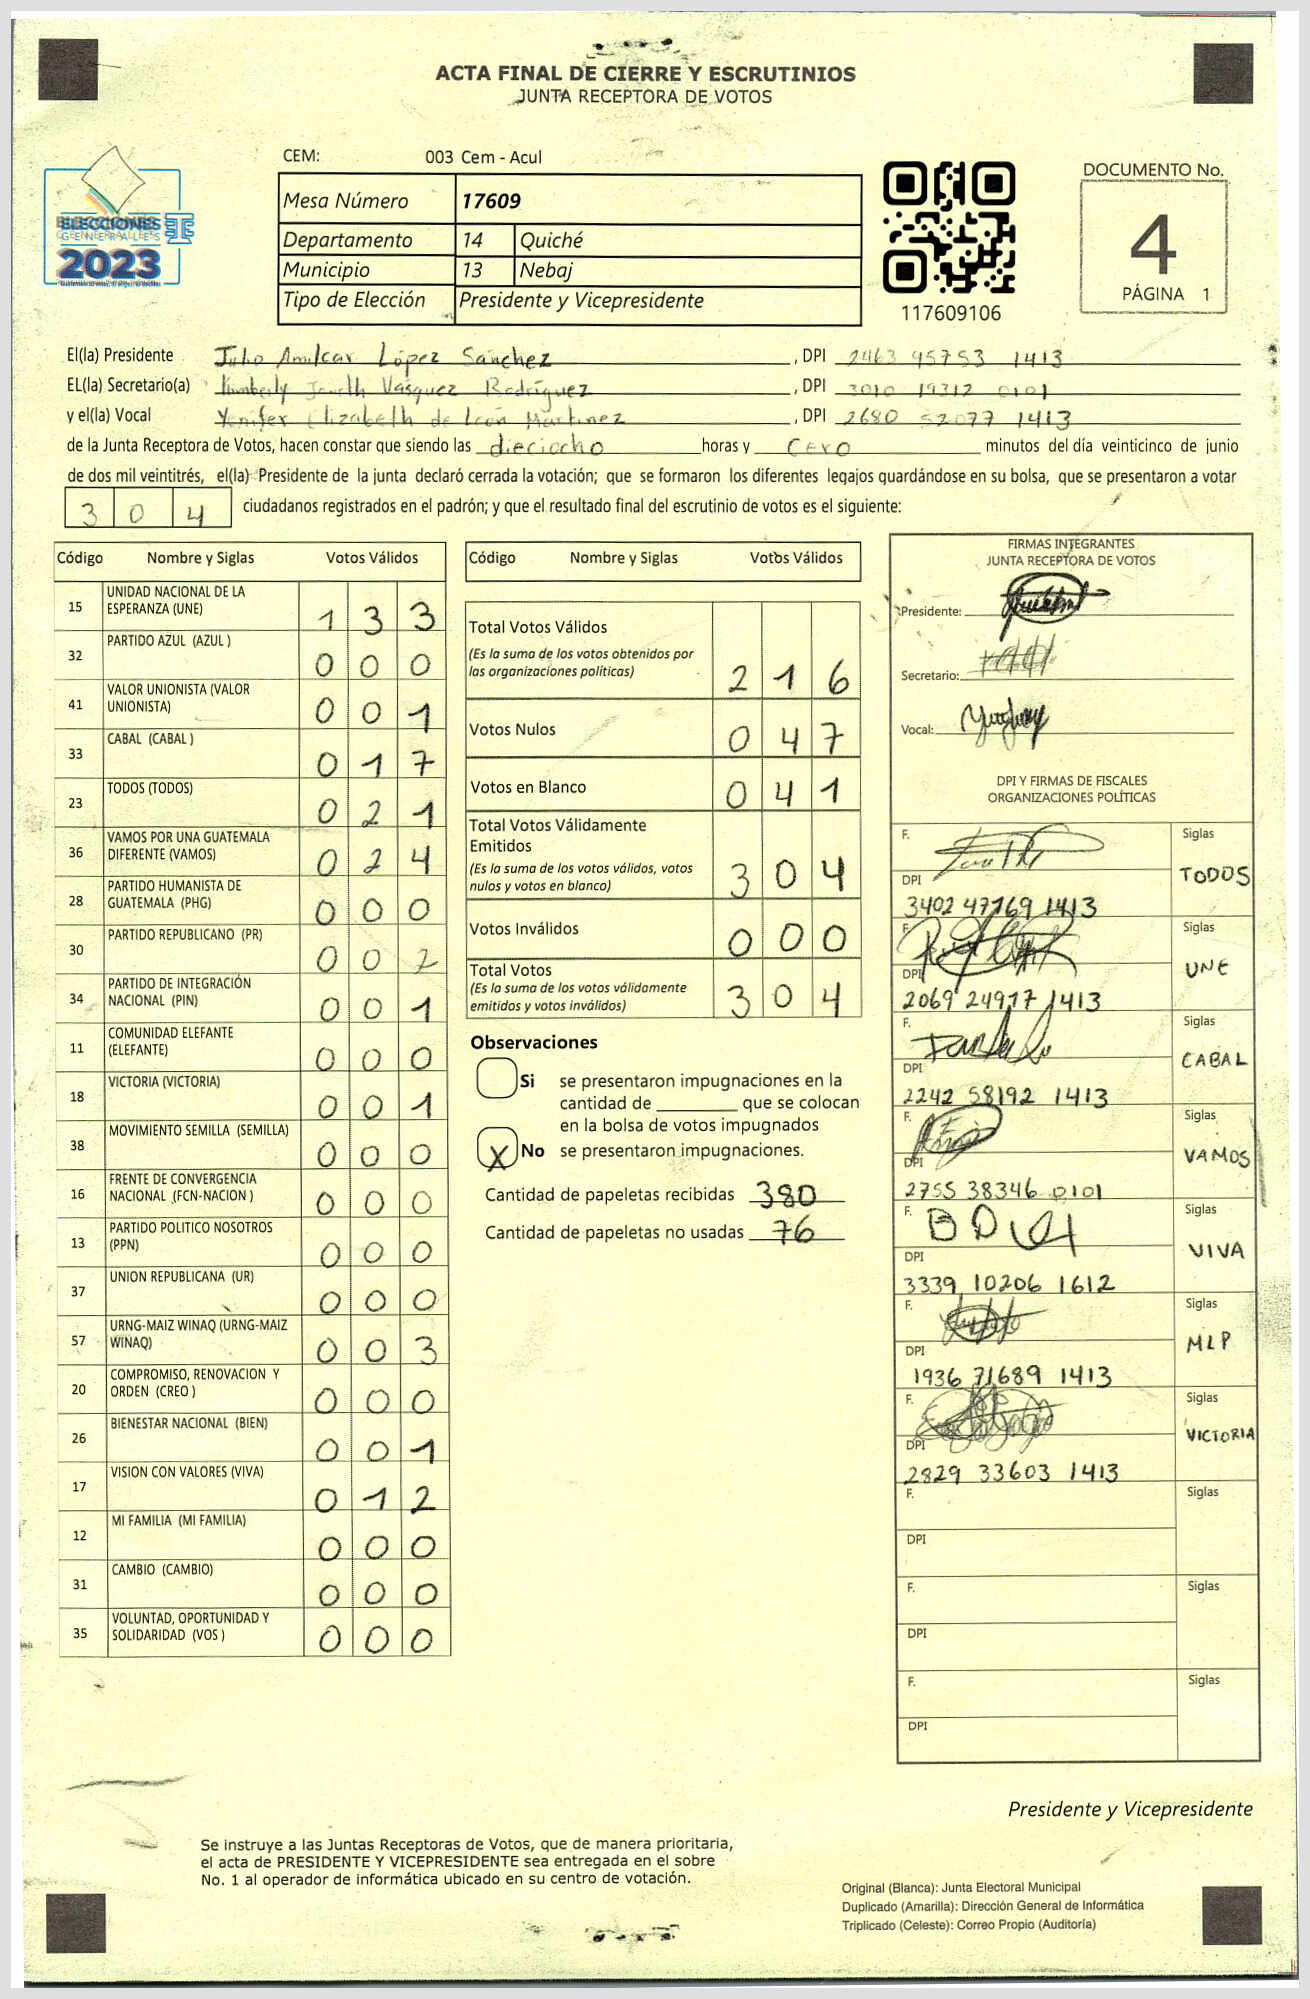 ACTA FINAL DE CIERRE Y ESCRUTINIOS
JUNTA RECEPTORA DE VOTOS
CEM: 003 Cem - Acul
Mesa Número 17609
Departamento 14 Quiché
Municipio 13 Nebaj
Tipo de Elección Presidente y Vicepresidente
ELECCIONES
GENERALES
2023
117609106
DOCUMENTO No.
4
PÁGINA 1
El(la) Presidente Julio Amilcar López Sánchez , DPI 2463 95753 1413
EL(la) Secretario(a) Kimberly Janeth Vásquez Rodríguez , DPI 3010 19312 0101
y el(la) Vocal Yenifer Elizabeth de León Martinez , DPI 2680 52077 1413
de la Junta Receptora de Votos, hacen constar que siendo las dieciocho horas y cero minutos del día veinticinco de junio
de dos mil veintitrés, el(la) Presidente de la junta declaró cerrada la votación; que se formaron los diferentes legajos guardándose en su bolsa, que se presentaron a votar
304 ciudadanos registrados en el padrón; y que el resultado final del escrutinio de votos es el siguiente:
Código Nombre y Siglas Votos Válidos
15 UNIDAD NACIONAL DE LA ESPERANZA (UNE) 133
32 PARTIDO AZUL (AZUL ) 000
41 VALOR UNIONISTA (VALOR UNIONISTA) 001
33 CABAL (CABAL ) 017
23 TODOS (TODOS) 021
36 VAMOS POR UNA GUATEMALA DIFERENTE (VAMOS) 024
28 PARTIDO HUMANISTA DE GUATEMALA (PHG) 000
30 PARTIDO REPUBLICANO (PR) 002
34 PARTIDO DE INTEGRACIÓN NACIONAL (PIN) 001
11 COMUNIDAD ELEFANTE (ELEFANTE) 000
18 VICTORIA (VICTORIA) 001
38 MOVIMIENTO SEMILLA (SEMILLA) 000
16 FRENTE DE CONVERGENCIA NACIONAL (FCN-NACION ) 000
13 PARTIDO POLITICO NOSOTROS (PPN) 000
37 UNION REPUBLICANA (UR) 000
57 URNG-MAIZ WINAQ (URNG-MAIZ WINAQ) 003
20 COMPROMISO, RENOVACION Y ORDEN (CREO ) 000
26 BIENESTAR NACIONAL (BIEN) 001
17 VISION CON VALORES (VIVA) 012
12 MI FAMILIA (MI FAMILIA) 000
31 CAMBIO (CAMBIO) 000
35 VOLUNTAD, OPORTUNIDAD Y SOLIDARIDAD (VOS ) 000
Código Nombre y Siglas Votos Válidos
Total Votos Válidos
(Es la suma de los votos obtenidos por
las organizaciones políticas) 216
Votos Nulos 047
Votos en Blanco 041
Total Votos Válidamente
Emitidos
(Es la suma de los votos válidos, votos
nulos y votos en blanco) 304
Votos Inválidos 000
Total Votos
(Es la suma de los votos válidamente
emitidos y votos inválidos) 304
Observaciones
Si se presentaron impugnaciones en la
cantidad de ________ que se colocan
en la bolsa de votos impugnados
X No se presentaron impugnaciones.
Cantidad de papeletas recibidas 380
Cantidad de papeletas no usadas 76
FIRMAS INTEGRANTES
JUNTA RECEPTORA DE VOTOS
Presidente:
Secretario:
Vocal:
DPI Y FIRMAS DE FISCALES
ORGANIZACIONES POLÍTICAS
F. Siglas
TODOS
DPI
3402 47769 1413
F. Siglas
UNE
DPI
2069 24977 1413
F. Siglas
CABAL
DPI
2242 58192 1413
F. Siglas
VAMOS
DPI
2755 38346 0101
F. Siglas
VIVA
DPI
3339 10206 1612
F. Siglas
MLP
DPI
1936 71689 1413
F. Siglas
VICTORIA
DPI
2829 33603 1413
F. Siglas
DPI
F. Siglas
DPI
F. Siglas
DPI
Presidente y Vicepresidente
Se instruye a las Juntas Receptoras de Votos, que de manera prioritaria,
el acta de PRESIDENTE Y VICEPRESIDENTE sea entregada en el sobre
No. 1 al operador de informática ubicado en su centro de votación.
Original (Blanca): Junta Electoral Municipal
Duplicado (Amarilla): Dirección General de Informática
Triplicado (Celeste): Correo Propio (Auditoría)